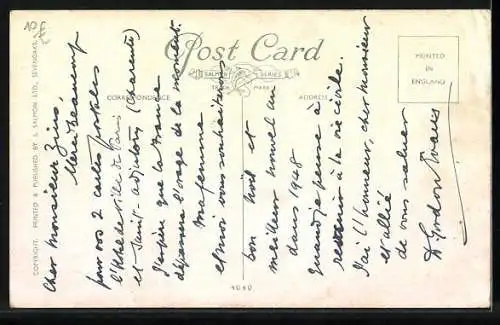 10 F
Post Card
SALMON SERIES
TRADE MARK
CORRESPONDENCE
ADDRESS
PRINTED
IN
ENGLAND
COPYRIGHT. PRINTED & PUBLISHED BY J. SALMON LTD., SEVENOAKS.
Cher monsieur
Merci beaucoup
pour vos 2 cartes postales
l'Hotel de Ville de Paris
et Saint- (Charente)
J'espère que la France
dépassera l'orage de la
Ma femme
et moi vous souhaitons
bon Noël et
meilleur nouvel an
dans 1948
Quand je pense à
retourner à la vie civile.
J'ai l'honneur, cher monsieur
et allié
de vous saluer
Gordon
4040